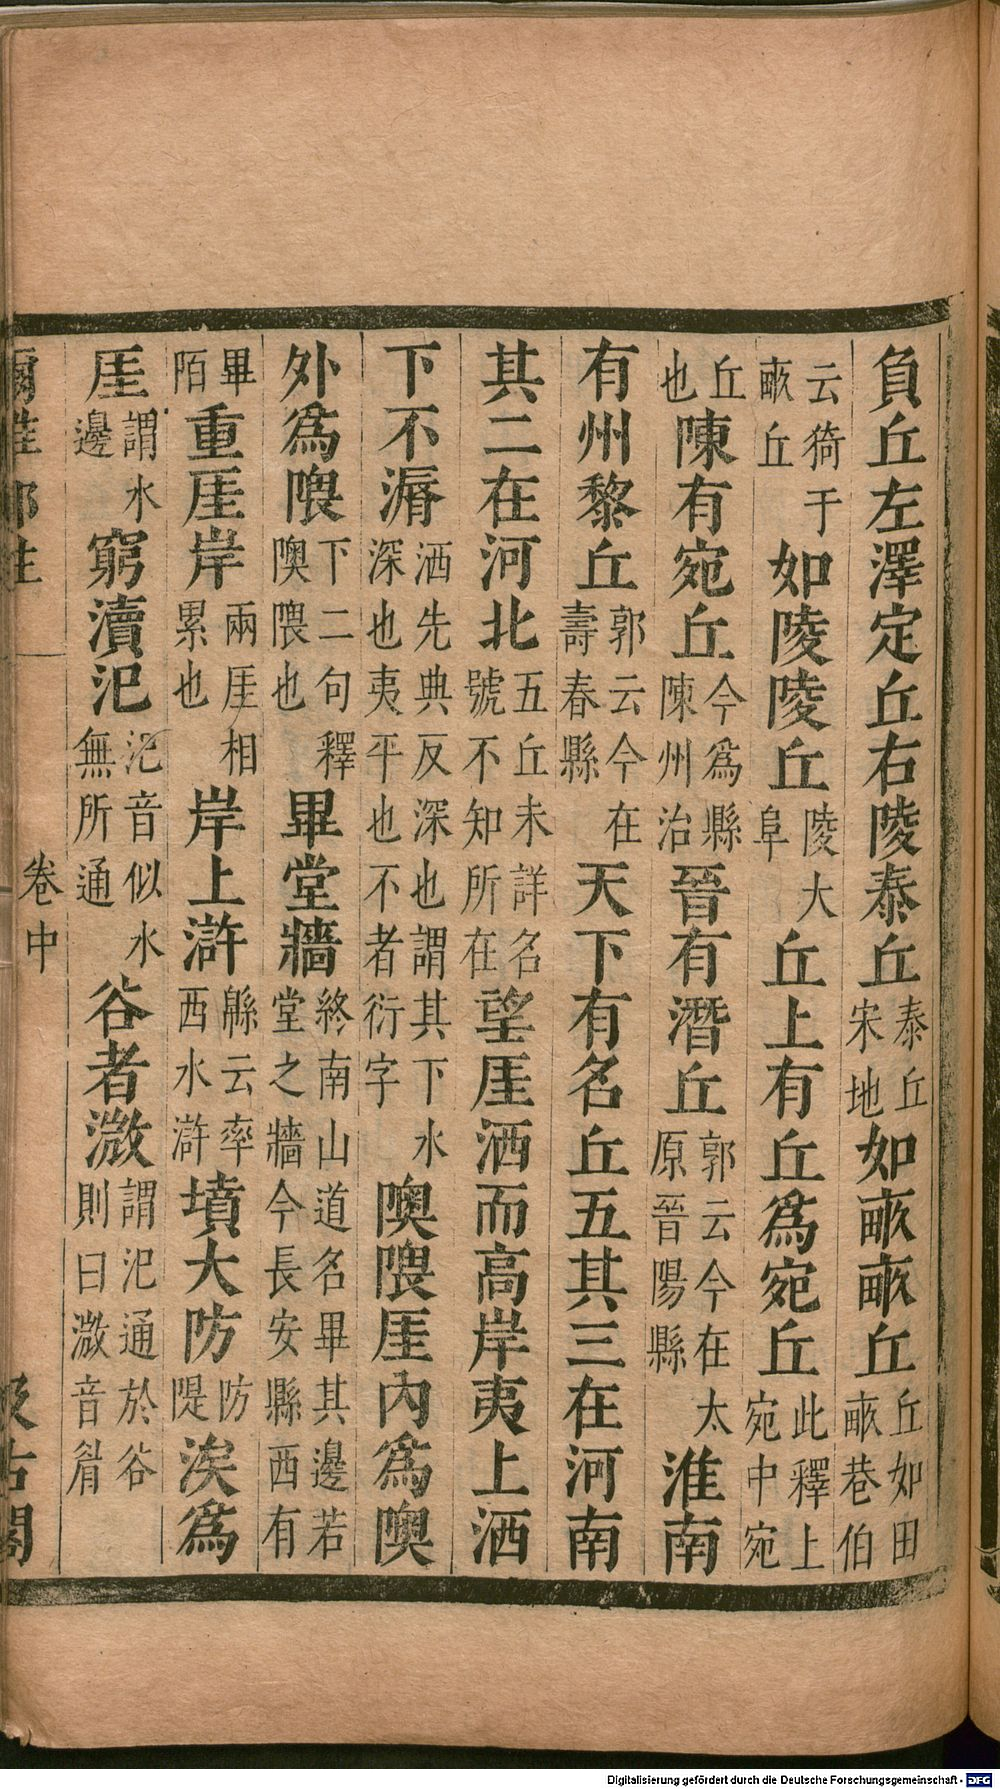 負丘左澤定丘右陵泰丘泰丘宋地如畞畞丘丘如田畞巷伯
云猗于畞丘如陵陵丘陵大阜丘上有丘爲宛丘此釋上宛中宛
丘也陳有宛丘今爲縣陳州治晉有潛丘郭云今在太原晉陽縣淮南
有州黎丘郭云今在壽春縣天下有名丘五其三在河南
其二在河北五丘未詳名號不知所在望厓洒而高岸夷上洒
下不漘洒先典反深深也夷平也深也謂其下水也不者衍字隩隈厓內爲隩
外爲隈下二句釋隩隈也畢堂牆終南山道名畢其邊若堂之牆今長安縣西有
畢陌重厓岸兩厓相累也岸上滸緜云率西水滸墳大防防隄涘爲
厓謂水邊窮瀆汜汜音似水無所通谷者溦謂汜通於谷則曰溦音眉
爾雅鄭注
卷中
汲古閣
Digitalisierung gefördert durch die Deutsche Forschungsgemeinschaft - DFG